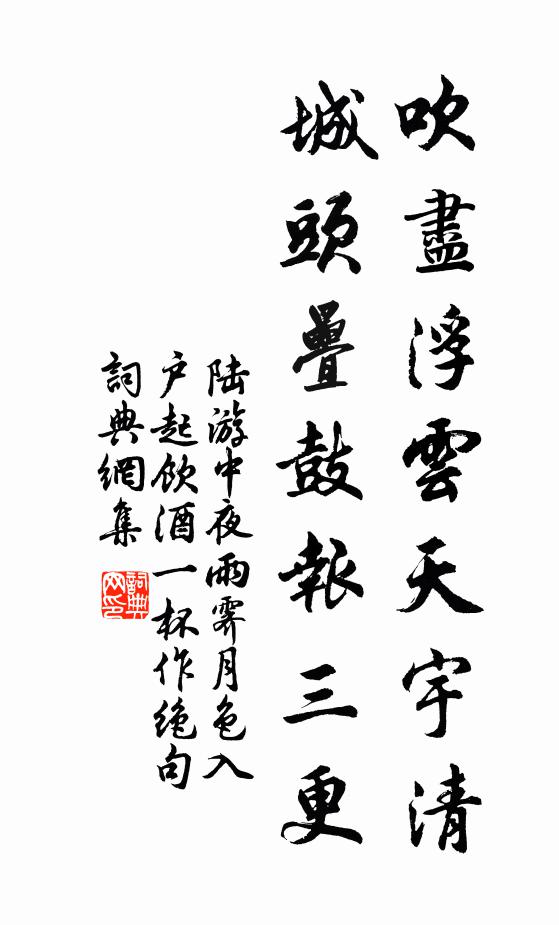 吹盡浮雲天宇清
城頭疊鼓報三更
陆游中夜雨霁月色入
户起飲酒一杯作絶句
詞典網集
詞典网印